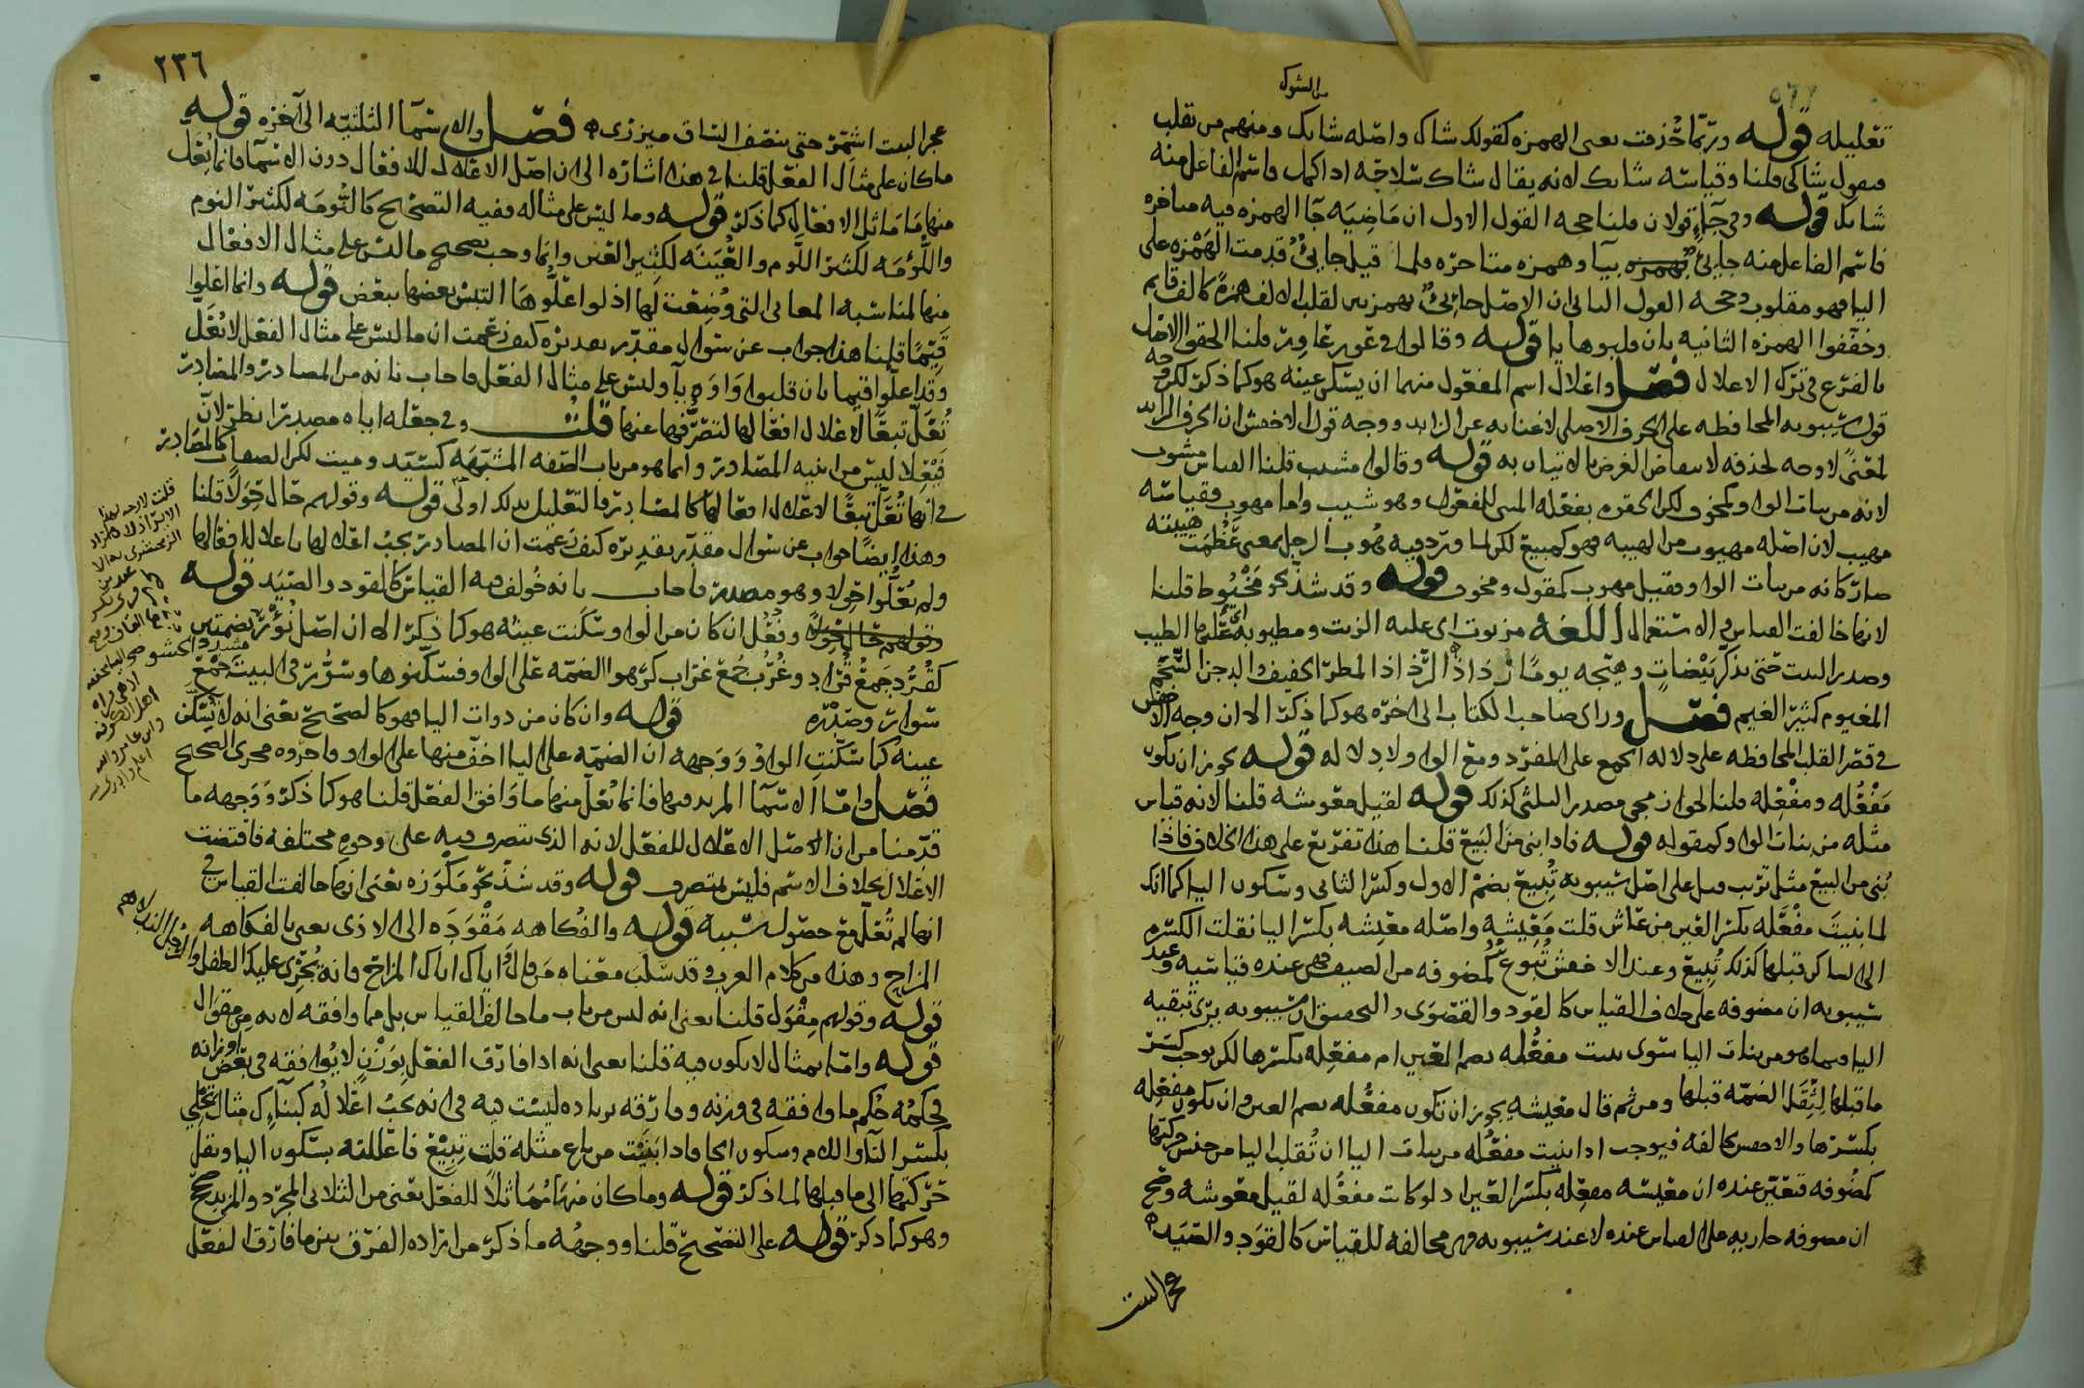 من الشوك
تعليله قوله وربما حُذفت يعنى الهمزه كقولك شاك واصله شايك ومنهم من تقلب
فيقول شاكى قلنا وقياسه شايك لانه يقال شاك سلاحه اذا كمل فاسم الفاعل منه
شايك قوله وفى جآءٍ قولان قلنا حجه القول الاول ان ماضيه جا الهمزه فيه متاخره
فاسم الفاعل منه جايئ بيآ وهمزه متاخره فلما قيل جايئ قدمت الهمزه على
اليا فهو مقلوب وحجه القول الثانى ان الاصل جائئ بهمزتين لقلب الالف همزة كالف قايم
وخففوا الهمزه الثانيه بان قلبوها يا قوله وقالوا فى عَوِر عاوِر قلنا الحقوا الاصل
بالفرع فى ترك الاعلال فصل واعلال اسم المفعول منهما ان يسكن عينه هو كما ذكر لكن وجه
قول سيبويه المحافظه على الحرف الاصلى لاغنايه عن الزايد ووجه قول الاخفش ان الحرف الزايد
لمعنىً لا وجه لحذفه لانتقاض الغرض بالاتيان به قوله وقالوا مشيب قلنا القياس مشوب
لانه من بنات الواو كمخوف لكن اجرى بفعله المبنى للمفعول وهو شيب واما مهوب فقياسه
مهيب لان اصله مهيوب من الهيبه فهو كمبيع لكن لما ورد فيه هُوب الرجل بمعنى عظُمت هيبته
صار كانه من بنات الواو فقيل مهوب كمقول ومخوف قوله وقد شذ نحو مَخْيُوط قلنا
لانها خالفت القياس فى الاستعمال اللغه مزيوت اى عليه الزيت ومطيوبه اى عليها الطيب
وصدر البيت حتى تذكر بَيْضاتٍ وهيّجه يومًا رَذاذ الرَّذاذ المطر الخفيف والدجن الغيم
المغيوم كثير الغيم فصل وراى صاحب الكتاب الى اخره هو كما ذكر الا ان وجه الاخفش
فى قصر القلب المحافظه على دلاله الجمع على المفرد ومع الواو لا دلاله قوله يجوز ان تكون
مَفْعُله ومَفْعِله قلنا لجواز مجى مصدر الثلاثى كذلك قوله لقيل معوشه قلنا لانه قياس
مثله من بنات الواو كمقوله قوله فاذا بنى من البيع قلنا هذا تفريع على هذا الخلاف فاذا
بُنى من البيع مثل تُرتب قيل على اصل سيبويه تُبِيع بضم الاول وكسر الثانى وسكون اليا كما انك
لما بنيت مفعله بكسر العين من عاش قلت مَعِيشه واصله معيِشه بكسر اليا نقلت الكسره
الى الساكن قبلها كذلك تُبِيع وعند الاخفش تُبُوع كمضوفه من الضيف فهى عنده قياسيه وعند
سيبويه ان مضوفه على خلاف القياس كالقود والقصوى والتحقيق ان سيبويه يرى تبقيه
اليا فيما هو من بنات اليا سوى بنيت مفعُله بضم العين ام مفعِله بكسرها لكن يوجب كسر
ما قبلها لثقل الضمه قبلها ومن ثم قال معيشه يجوز ان تكون مفعُله بضم العين وان تكون مفعِله
بكسرها والاخفش يخالفه فيوجب اذا بنيت مفعُله من بنات اليا ان تُقلب اليا من جنس حركتها
كمضوفه فتعين عنده ان معيشه مفعِله بكسر العين اذ لو كانت مفعُله لقيل معوشه وصح
ان مضوفه جاريه على القياس عنده لا عند سيبويه فهى مخالفه للقياس كالقود والصيد
عجز البيت
٢٣٦
عجز البيت اشمّر حتى ينصف الساق ميزرى فصل والاسمآ الثلثيه الى آخره قوله
ما كان على مثال الفعل قلنا فى هذا اشاره الى ان اصل الاعلال للافعال دون الاسمآ فانما يُعَل
منها ما ماثل الافعال كما ذكر قوله وما ليس على مثاله ففيه التصحيح كالنُّوَمَه لكثير النوم
واللُّوَمه لكثير اللَّوم والعُيَبَه لكثير العيب وانما وجب تصحيح ما ليس على مثال الافعال
منها لمناسبه المعانى التى وُضِعت لها اذ لو اعلُّوها التبس بعضها ببعض قوله وانما اعلوا
قِيَمًا قلنا هذا جواب عن سوال مقدّر تقديره كيف زعمت ان ما ليس على مثال الفعل لا يُعَل
وقد اعلّوا قيما بان قلبوا وَاوَه يآ وليس على مثال الفعل فاجاب بانه من المصادر والمصادر
تُعَلّ تبعًا لاعلال افعالها لتصرفها عنها قلت وفى جعله اياه مصدرا نظر لان
فِعَلا ليس من ابنيه المصادر وانما هو من باب الصفه المشبّهه كسيّد وميت لكن الصفات كالمصادر
فى انها تُعَلّ تبعًا لاعلال افعالها كالمصادر فالتعليل بذلك اولى قوله وقولهم حال حِوَلًا قلنا
وهذا ايضًا جواب عن سوال مقدّر تقديره كيف زعمت ان المصادر يجب اعلالها باعلال افعالها
ولم يُعلّوا حِولا وهو مصدر فاجاب بانه خُولف فيه القياس كالقود والصَيَد قوله
وفُعُل ان كان من الواو سكَنت عينُه هو كما ذكر الا ان اصل نُوْر بضمتين
كقُرُد جمع قُراد وغُرُب جمع غراب كرهوا الضمه على الواو فسكنوها وسُوُر فى البيت جمع
سوار وصدره قوله وان كان من ذوات اليا فهو كالصحيح يعنى انه لا يُسكَّن
عينه كما سُكّنتِ الواوُ وَوَجهه ان الضمّه على اليا اخفّ منها على الواو فاجروه مجرى الصحيح
فصل وامّا الاسمآ المزيد فيها فانما يُعل منها ما وافق الفعل قلنا هو كما ذكر وَوَجهه ما
قدّمنا من ان الاصل الاعلال للفعل لانه الذى يتصرف فيه على وجوهٍ مختلفه فاقتضت
الاعلال بخلاف الاسم فليس بمتصرف قوله وقد شذّ نحو مَكْوَزه يعنى انها خالفت القياس فى
انها لم تُعلّ مع حصول سببه قوله والفُكاهه مَقْوَدَه الى الاذى يعنى بالفكاهه
المزاح وهذا من كلام العرب وقد سَلَب معناه من قال وَاياك اياك المزاح فانه يُجرِّى عليك الطفل والرجل النذلا
قوله وقولهم مِقْوَل قلنا يعنى انه ليس من باب ما خالف القياس بل مما وافقه لانه من مقوال
قوله واما بمثال لا يكون فيه قلنا يعنى انه اذا فارق الفعل بوَزْنٍ لا يُوافقه فى بعض اوزانه
فحكمُه حُكم ما وافقه فى وزنه وفارقه بزياده ليست فيه فى انه يجبُ اعلالُه كبنآءِك مثال تِحْلِى
بكسر التآ واللام وسكون الحا فاذا بَنَيْت من باع مثله قلت تِبِيع فاعللته بسكون اليا ونقل
حركتها الى ما قبلها لما ذكر قوله وما كان منها مُماثلًا للفعل يعنى من الثلاثى المجرد والمزيد صحح
وهو كما ذكر قوله على التصحيح قلنا ووجهُه ما ذكر من ارادة الفرق بين ما فارق الفعل